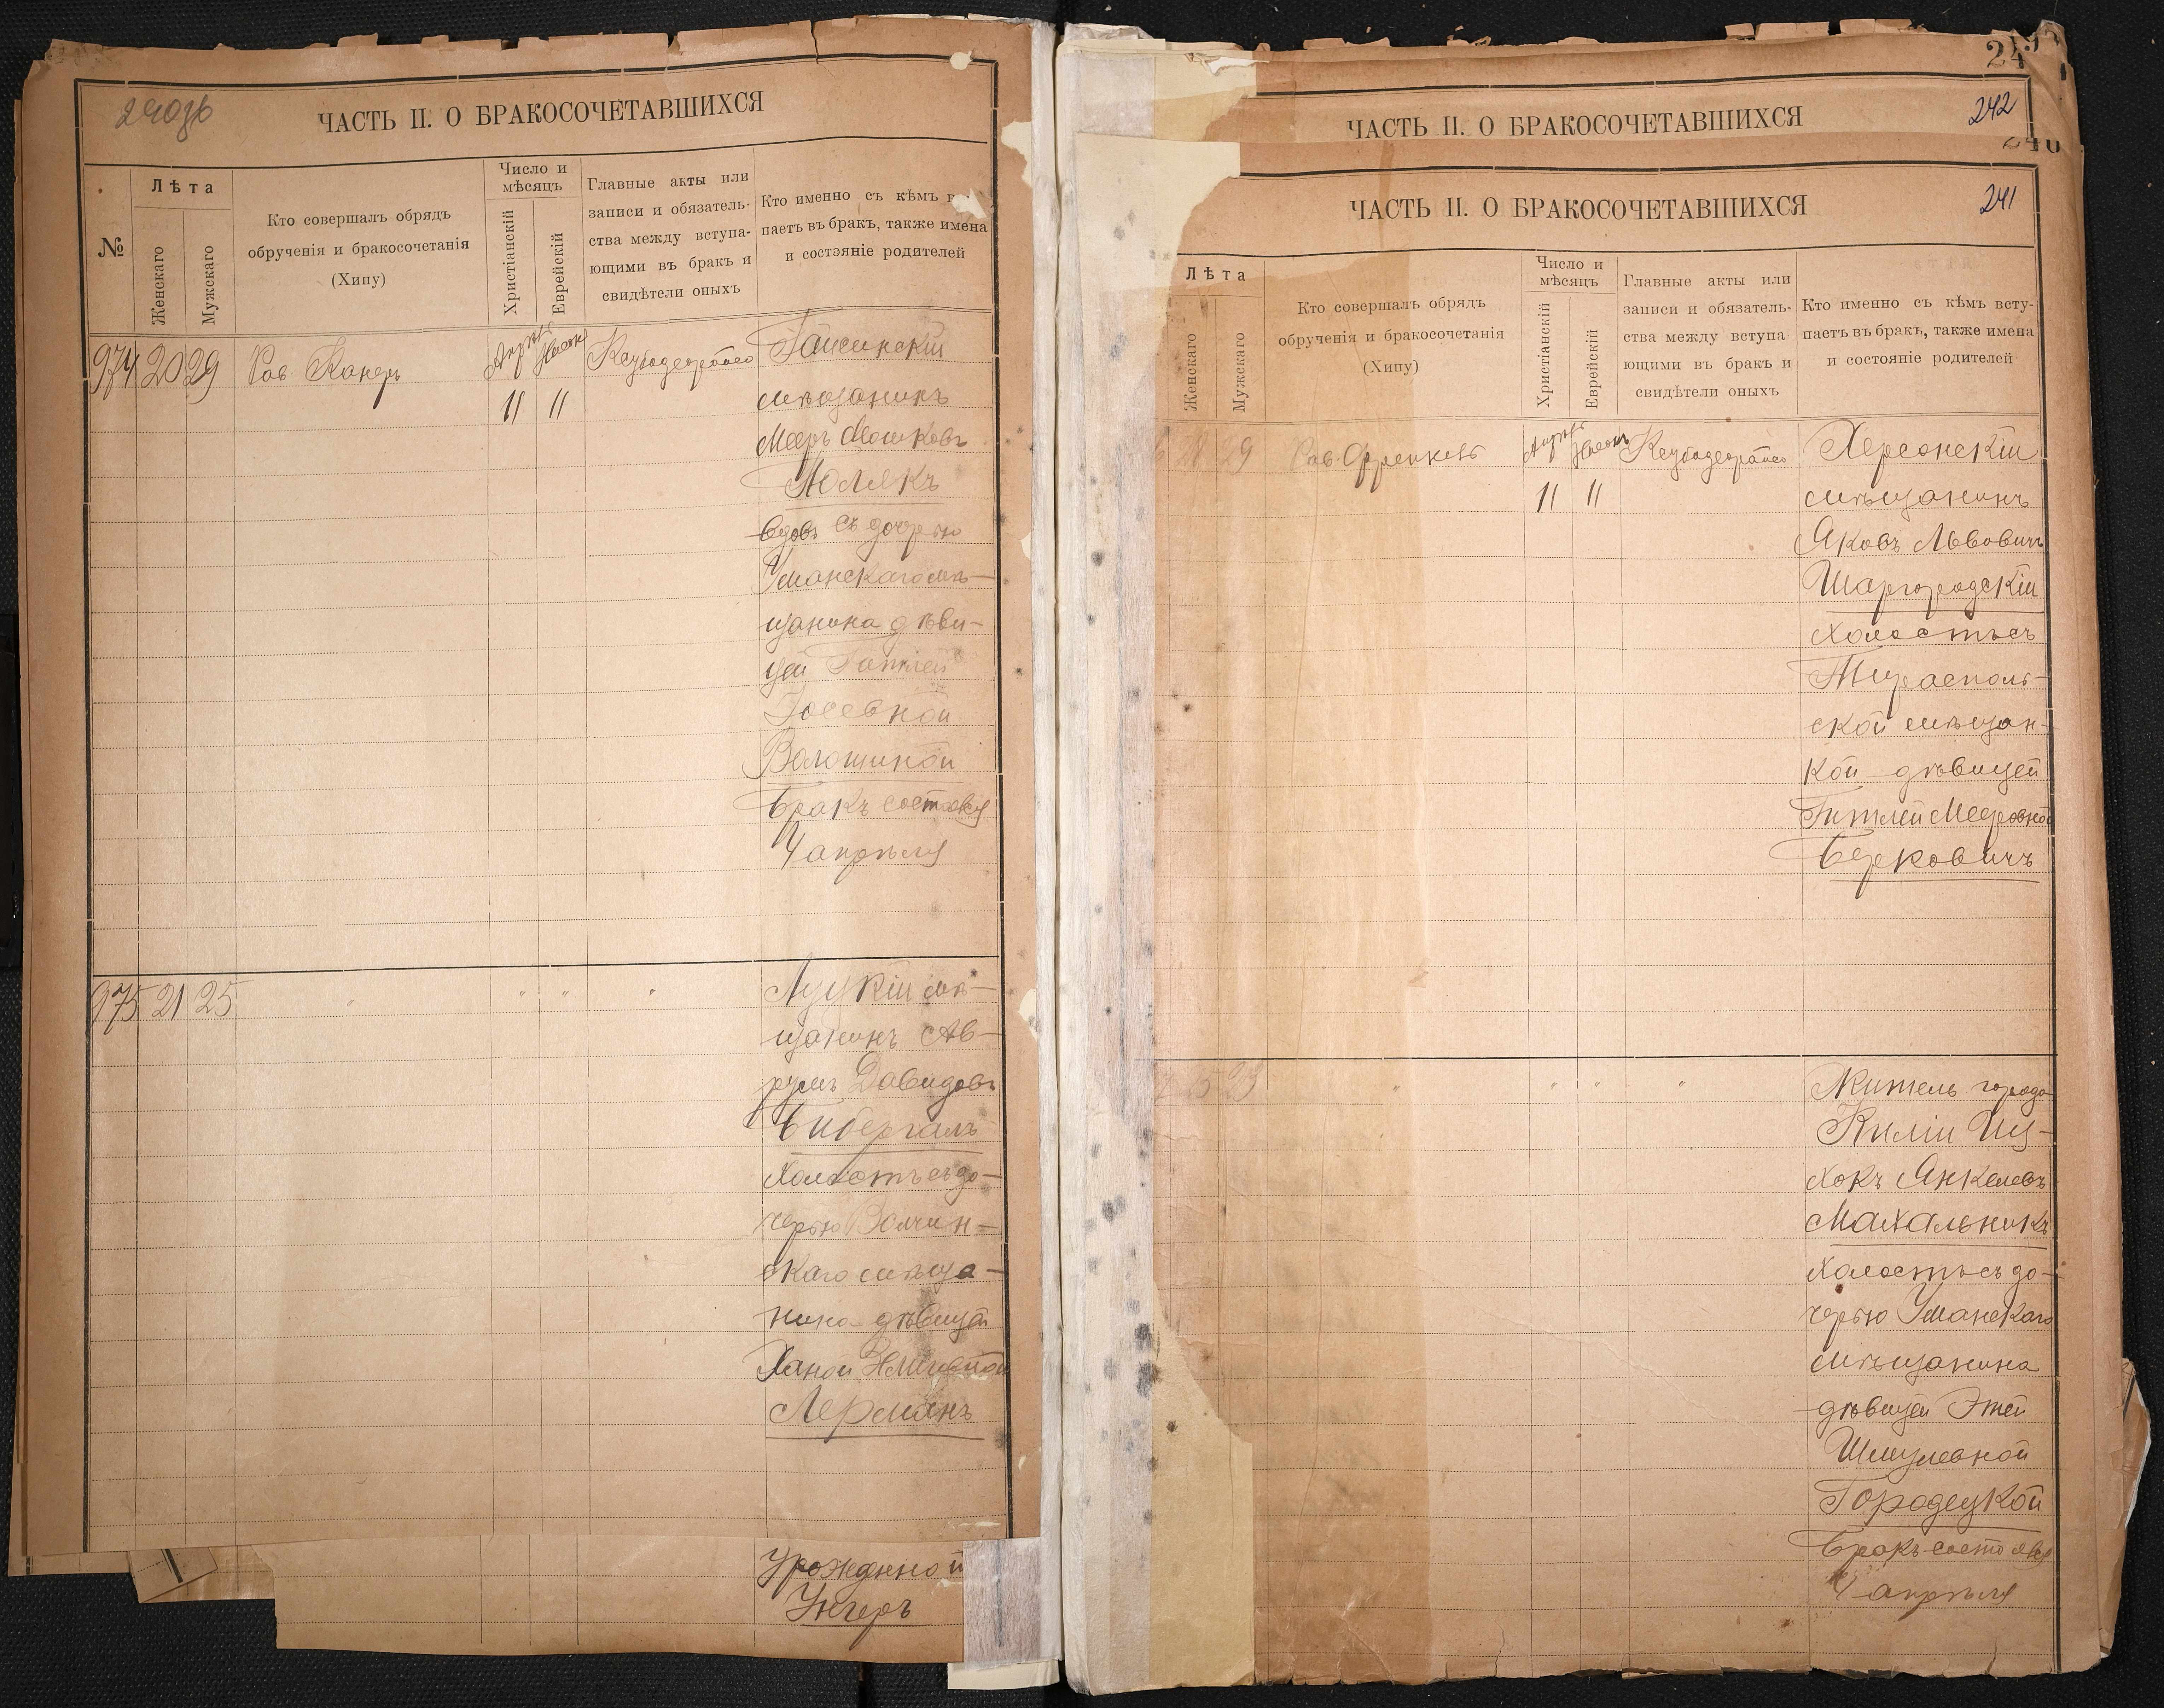 240об
ЧАСТЬ II. О БРАКОСОЧЕТАВШИХСЯ
№
Лѣта
Женскаго
Мужскаго
Кто совершалъ обрядъ
обрученія и бракосочетанія
(Хипу)
Число и
мѣсяцъ
Христіанскій
Еврейскій
Главные акты или
записи и обязатель-
ства между вступа-
ющими въ бракъ и
свидѣтели оныхъ
Кто именно съ кѣмъ
паетъ въ бракъ, также имена
и состояніе родителей
974 20 29 Рав Канеръ
11 11
Гайсинскій
мѣщанинъ
Мееръ Мошковъ
Полякъ
вдов съ дочерью
Уманскаго мѣ-
щанина дѣви-
цей Гитлей
Іосевной
Волошиной
Бракъ состоявся
4 апрѣля
975 21 25 " " " "
Луцкій мѣ-
щанинъ Ав-
румъ Давидовъ
Бибергалъ
холостъ съ до-
черью Волчин-
скаго мѣща-
нина дѣвицей
Ханой
Лерманъ
Урожденной
Унгеръ
ЧАСТЬ II. О БРАКОСОЧЕТАВШИХСЯ
242
ЧАСТЬ II. О БРАКОСОЧЕТАВШИХСЯ
241
Лѣта
Женскаго
Мужскаго
Кто совершалъ обрядъ
обрученія и бракосочетанія
(Хипу)
Число и
мѣсяцъ
Христіанскій
Еврейскій
Главные акты или
записи и обязатель-
ства между вступа-
ющими въ бракъ и
свидѣтели оныхъ
Кто именно съ кѣмъ всту-
паетъ въ бракъ, также имена
и состояніе родителей
29 Рав Френкель
11 11
Херсонскій
мѣщанинъ
Яковъ Львовичъ
Шаргородскій
холостъ съ
Тирасполь-
ской мѣщан-
кой дѣвицей
Гитлей Мееровной
Берковичъ
23 " " " "
Житель города
Киліи Иц-
хокъ Янкелевъ
Махальникъ
холостъ съ до-
черью Уманскаго
мѣщанина
дѣвицей Этей
Шмулевной
Городецкой
Бракъ состоявся
4 апрѣля